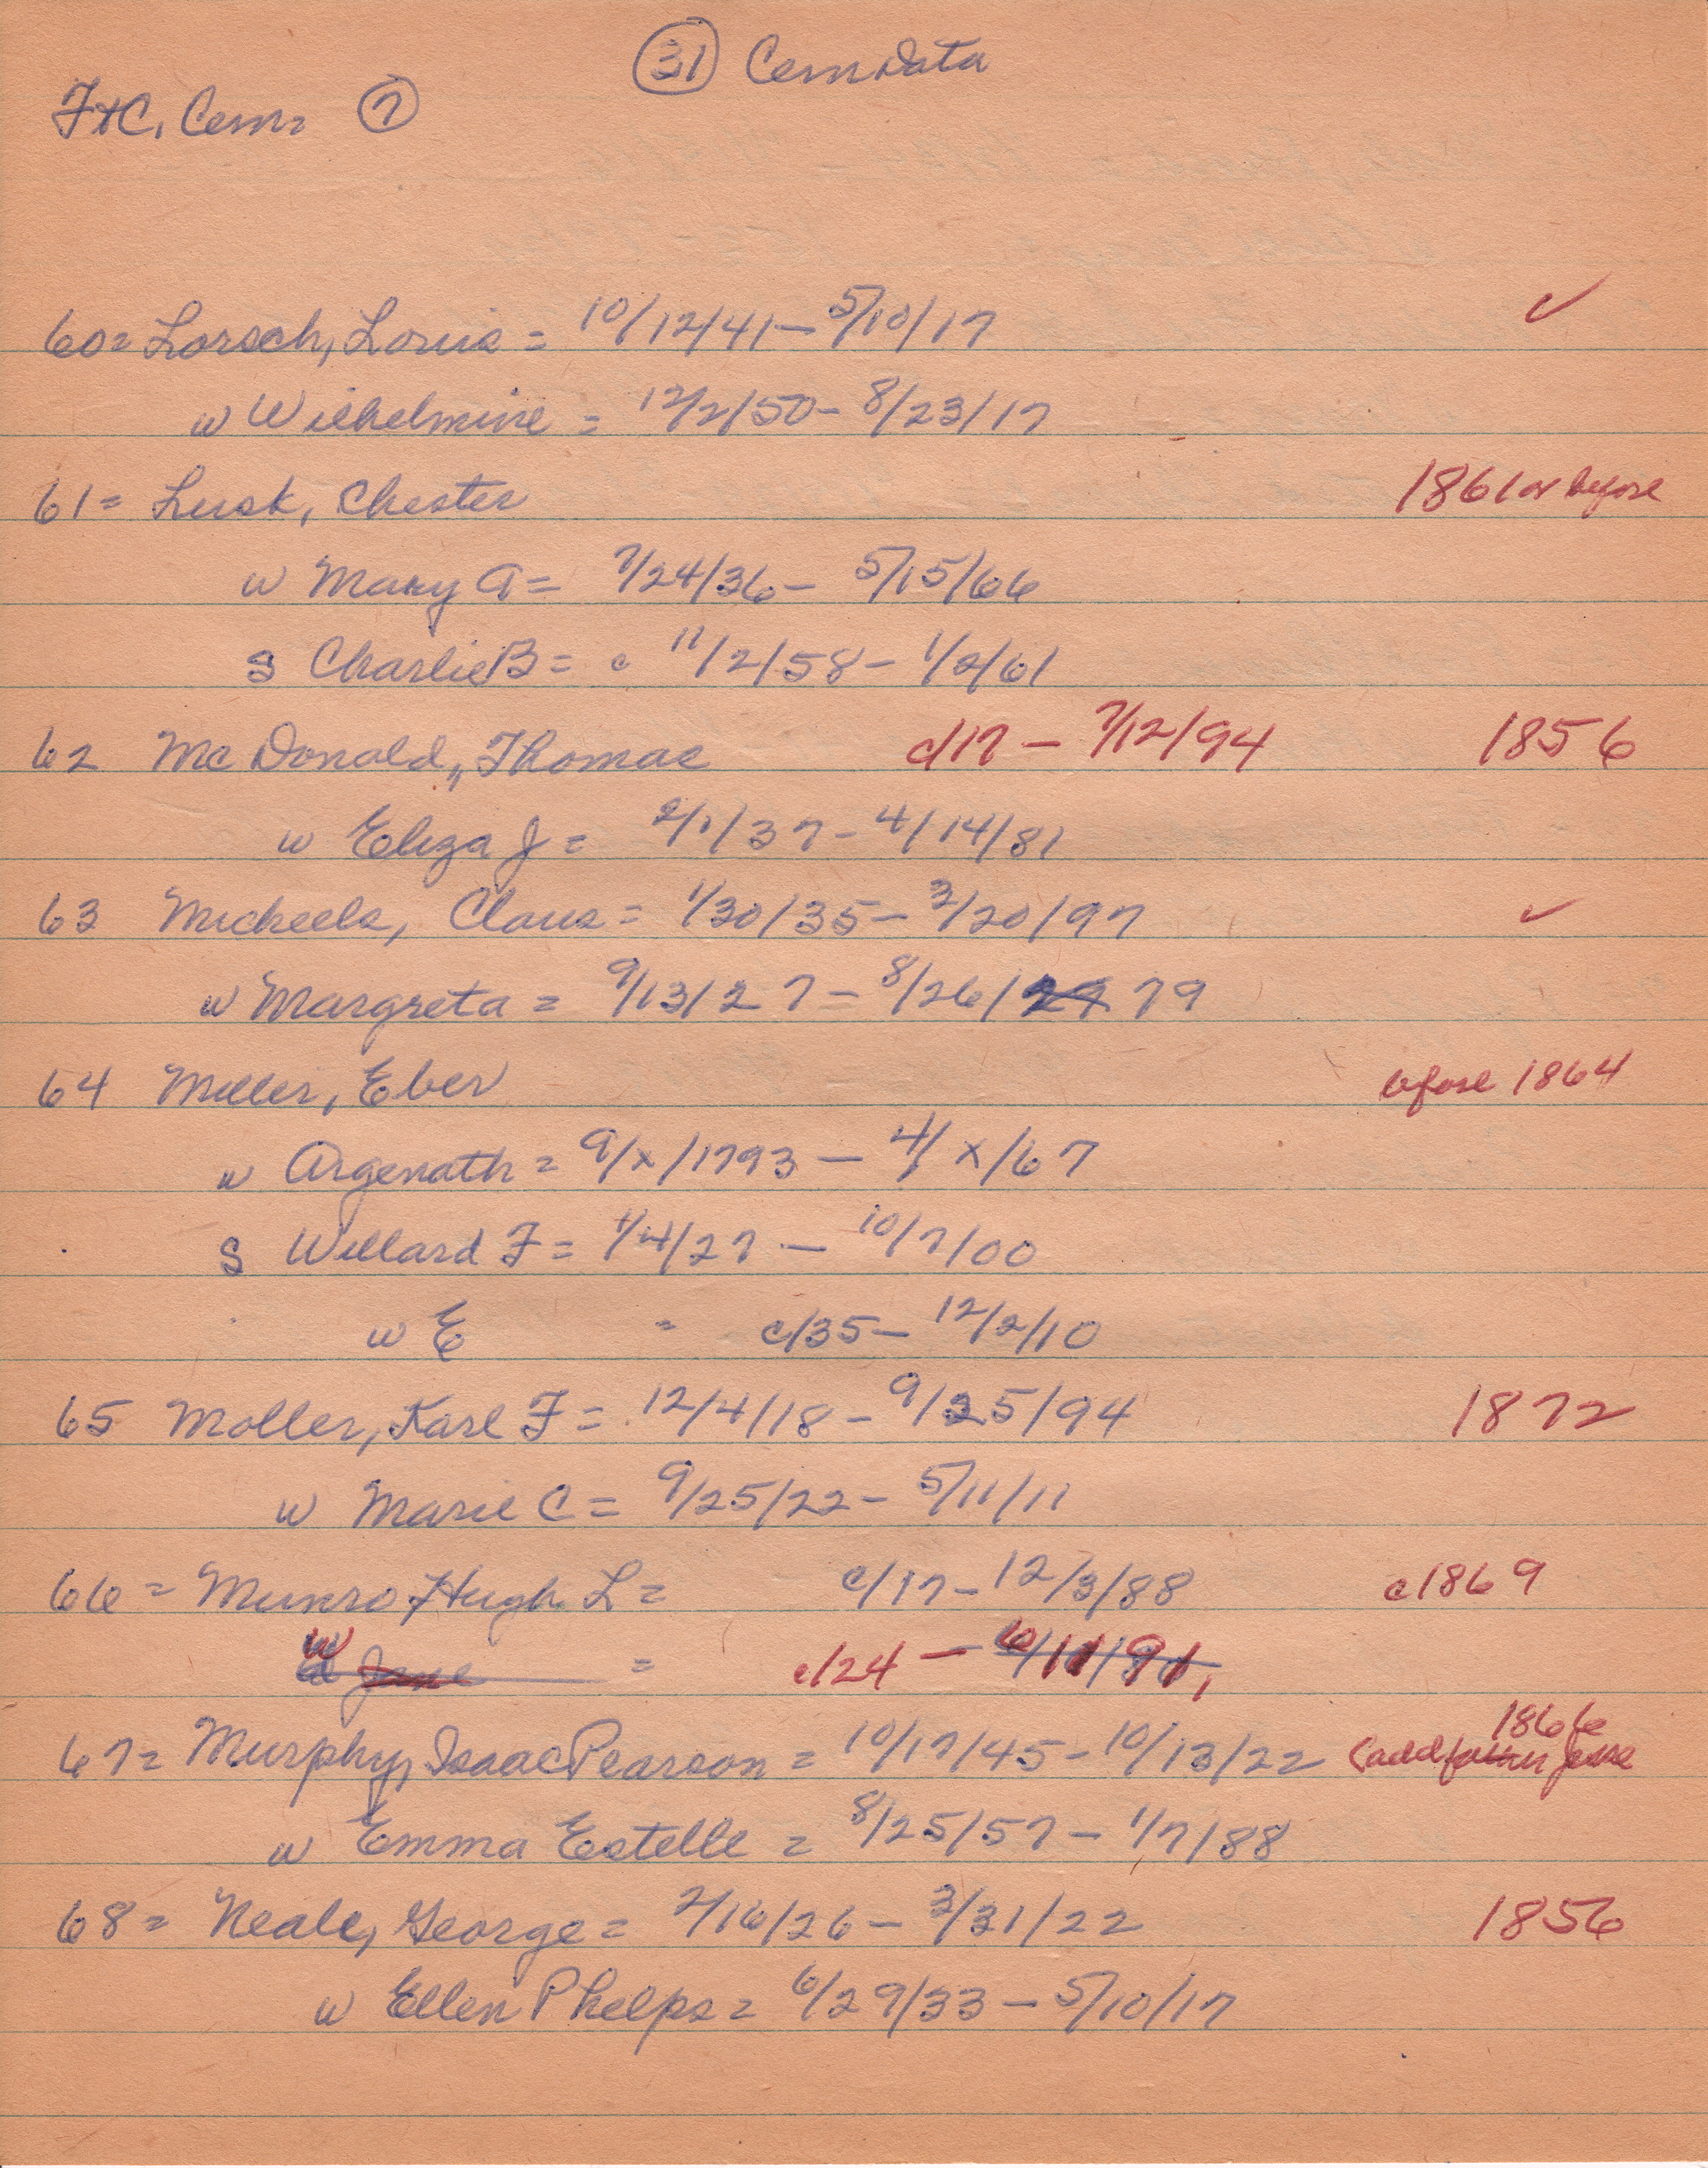 31 Cem Data
F+C. Cem= 7
60= Lorsch, Louis = 10/12/41 – 5/10/17 ✓
w Wilhelmine = 12/2/50 – 8/23/17
61= Lusk, Chester 1861 or before
w Mary A = 7/24/36 – 5/15/66
S Charlie B = c 11/2/58 – 1/2/61
62 McDonald, Thomas c/17 – 7/12/94 1856
w Eliza J = 2/1/37 – 4/14/81
63 Mickeels, Claus = 1/30/35 – 3/20/97 ✓
w Margreta = 9/13/27 – 8/26/ 79
64 Miller, Eber before 1864
w Argenath = 9/x/1793 – 4/x/67
S Willard F = 1/4/27 – 10/7/00
w E = c/35 – 12/2/10
65 Moller, Karl F = 12/4/18 – 9/25/94 1872
w Marie C = 9/25/22 – 5/11/11
66 = Munro, Hugh L = c/17 – 12/3/88 c1869
w Jane = c/24 –
1866
67= Murphy, Isaac Pearson = 10/17/45 – 10/13/22 (add father Jesse
w Emma Estelle = 8/25/57 – 1/7/88
68= Neale, George = 2/16/26 – 3/31/22 1856
w Ellen Phelps = 6/29/33 – 5/10/17